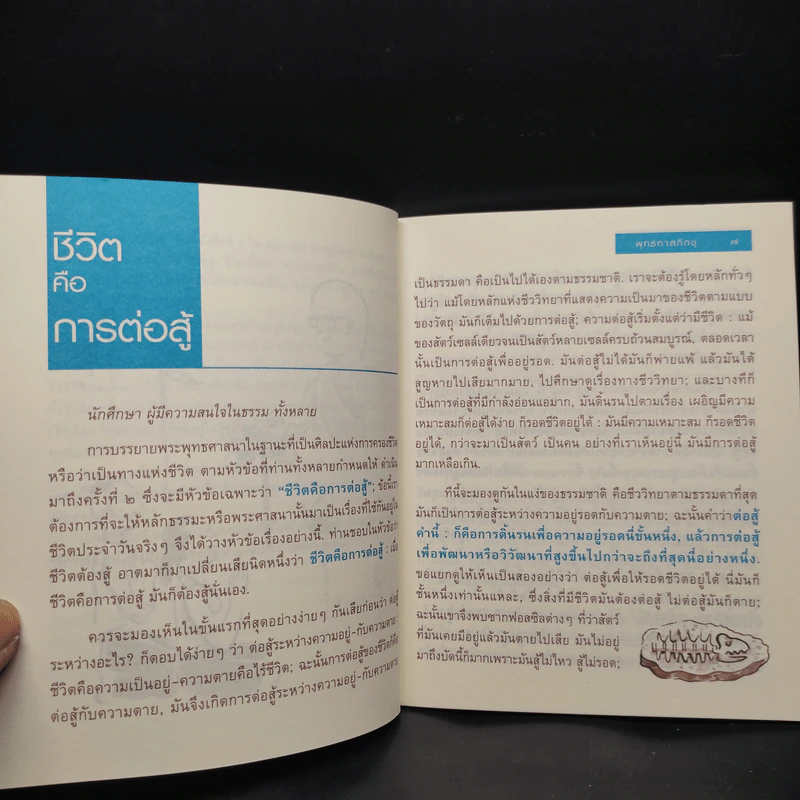 ชีวิต
คือ
การต่อสู้
นักศึกษา ผู้มีความสนใจในธรรม ทั้งหลาย
การบรรยายพระพุทธศาสนาในฐานะที่เป็นศิลปะแห่งการครองชีวิต
หรือว่าเป็นทางแห่งชีวิต ตามหัวข้อที่ท่านทั้งหลายกำหนดให้ ดำเนิน
มาถึงครั้งที่ ๒ ซึ่งจะมีหัวข้อเฉพาะว่า “ชีวิตคือการต่อสู้”; ข้อนี้เรา
ต้องการที่จะให้หลักธรรมะหรือพระศาสนานั้นมาเป็นเรื่องที่ใช้กันอยู่ใน
ชีวิตประจำวันจริงๆ จึงได้วางหัวข้อเรื่องอย่างนี้. ท่านชอบในหัวข้อว่า
ชีวิตต้องสู้ อาตมาก็มาเปลี่ยนเสียนิดหนึ่งว่า ชีวิตคือการต่อสู้ : เมื่อ
ชีวิตคือการต่อสู้ มันก็ต้องสู้นั่นเอง.
ควรจะมองเห็นในขั้นแรกที่สุดอย่างง่ายๆ กันเสียก่อนว่า ต่อสู้
ระหว่างอะไร? ก็ตอบได้ง่ายๆ ว่า ต่อสู้ระหว่างความอยู่-กับความตาย :
ชีวิตคือความเป็นอยู่-ความตายคือไร้ชีวิต; ฉะนั้นการต่อสู้ของชีวิตก็คือ
ต่อสู้กับความตาย, มันจึงเกิดการต่อสู้ระหว่างความอยู่-กับความตาย
พุทธทาสภิกขุ ๗
เป็นธรรมดา คือเป็นไปได้เองตามธรรมชาติ. เราจะต้องรู้โดยหลักทั่วๆ
ไปว่า แม้โดยหลักแห่งชีววิทยาที่แสดงความเป็นมาของชีวิตตามแบบ
ของวัตถุ มันก็เต็มไปด้วยการต่อสู้; ความต่อสู้เริ่มตั้งแต่ว่ามีชีวิต : แม้
ของสัตว์เซลล์เดียวจนเป็นสัตว์หลายเซลล์ครบถ้วนสมบูรณ์, ตลอดเวลา
นั้นเป็นการต่อสู้เพื่ออยู่รอด. มันต่อสู้ไม่ได้มันก็พ่ายแพ้ แล้วมันได้
สูญหายไปเสียมากมาย, ไปศึกษาดูเรื่องทางชีววิทยา; และบางทีก็
เป็นการต่อสู้ที่มีกำลังอ่อนแอมาก, มันดิ้นรนไปตามเรื่อง เผอิญมีความ
เหมาะสมก็ต่อสู้ได้ง่าย ก็รอดชีวิตอยู่ได้ : มันมีความเหมาะสม ก็รอดชีวิต
อยู่ได้, กว่าจะมาเป็นสัตว์ เป็นคน อย่างที่เราเห็นอยู่นี้ มันมีการต่อสู้
มากเหลือเกิน.
ทีนี้จะมองดูกันในแง่ของธรรมชาติ คือชีววิทยาตามธรรมดาที่สุด
มันก็เป็นการต่อสู้ระหว่างความอยู่รอดกับความตาย; ฉะนั้นคำว่าต่อสู้
คำนี้ : ก็คือการดิ้นรนเพื่อความอยู่รอดนี่ขั้นหนึ่ง, แล้วการต่อสู้
เพื่อพัฒนาหรือวิวัฒนาที่สูงขึ้นไปกว่าจะถึงที่สุดนี่อย่างหนึ่ง.
ขอแยกดูให้เห็นเป็นสองอย่างว่า ต่อสู้เพื่อให้รอดชีวิตอยู่ได้ นี่มันก็
ขั้นหนึ่งเท่านั้นแหละ, ซึ่งสิ่งที่มีชีวิตมันต้องต่อสู้ ไม่ต่อสู้มันก็ตาย;
ฉะนั้นเขาจึงพบซากฟอสซิลต่างๆ ที่ว่าสัตว์
ที่มันเคยมีอยู่แล้วมันตายไปเสีย มันไม่อยู่
มาถึงบัดนี้ก็มากเพราะมันสู้ไม่ไหว สู้ไม่รอด;